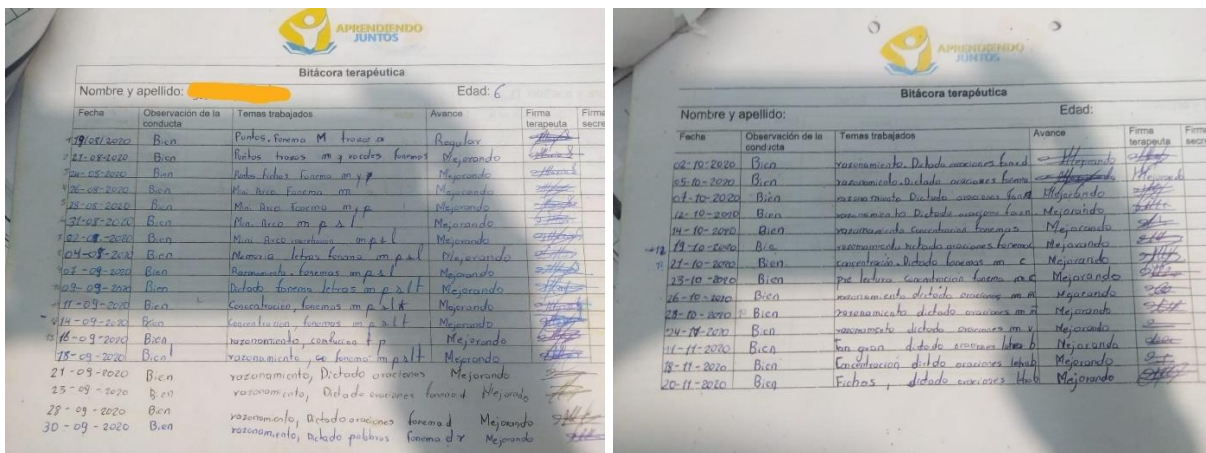 APRENDIENDO
JUNTOS
Bitácora terapéutica
Nombre y apellido: Edad: 6
Fecha Observación de la conducta Temas trabajados Avance Firma terapeuta Firma secre
19/08/2020 Bien Puntos, fonema M trazos Regular
21-08-2020 Bien Puntos trazos m y vocales fonemas Mejorando
Bien fichas fonema m y p Mejorando
26-08-2020 Bien Mini Arco Fonema m Mejorando
28-08-2020 Bien Mini Arco Fonema m, p Mejorando
31-08-2020 Bien Mini Arco m p s l Mejorando
Bien Mini Arco m p s l Mejorando
Bien Memoria letras fonema m p s l Mejorando
07-09-2020 Bien Razonamiento, fonemas m p s l Mejorando
09-09-2020 Bien Dictado fonema letras m p s l t Mejorando
11-09-2020 Bien Concentracion, fonemas m p s l t Mejorando
14-09-2020 Bien Concentracion, fonemas m p s l t Mejorando
16-09-2020 Bien razonamiento, t p Mejorando
18-09-2020 Bien razonamiento, fonema m p s l t Mejorando
21-09-2020 Bien razonamiento, Dictado oraciones Mejorando
23-09-2020 Bien razonamiento, Dictado oraciones fonema d Mejorando
28-09-2020 Bien razonamiento, Dictado oraciones fonema d Mejorando
30-09-2020 Bien razonamiento, Dictado palabras fonema d r Mejorando
APRENDIENDO
JUNTOS
Bitácora terapéutica
Nombre y apellido: Edad:
Fecha Observación de la conducta Temas trabajados Avance Firma terapeuta Firma secre
02-10-2020 Bien razonamiento. Dictado oraciones
05-10-2020 Bien razonamiento. Dictado oraciones fonema Mejorando
07-10-2020 Bien razonamiento Dictado oraciones Mejorando
12-10-2020 Bien razonamiento Dictado oraciones Mejorando
14-10-2020 Bien razonamiento Concentracion fonemas Mejorando
19-10-2020 Bie razonamiento dictado oraciones fonemas Mejorando
21-10-2020 Bien concentración. Dictado fonemas m c Mejorando
23-10-2020 Bien Pre lectura Concentracion fonema m c Mejorando
26-10-2020 Bien razonamiento dictado oraciones m Mejorando
28-10-2020 Bien razonamiento dictado oraciones m Mejorando
Bien razonamiento dictado oraciones m v Mejorando
11-11-2020 Bien dictado oraciones letra b Mejorando
18-11-2020 Bien Concentración dictado oraciones letra b Mejorando
20-11-2020 Bien Fichas, dictado oraciones letra b Mejorando